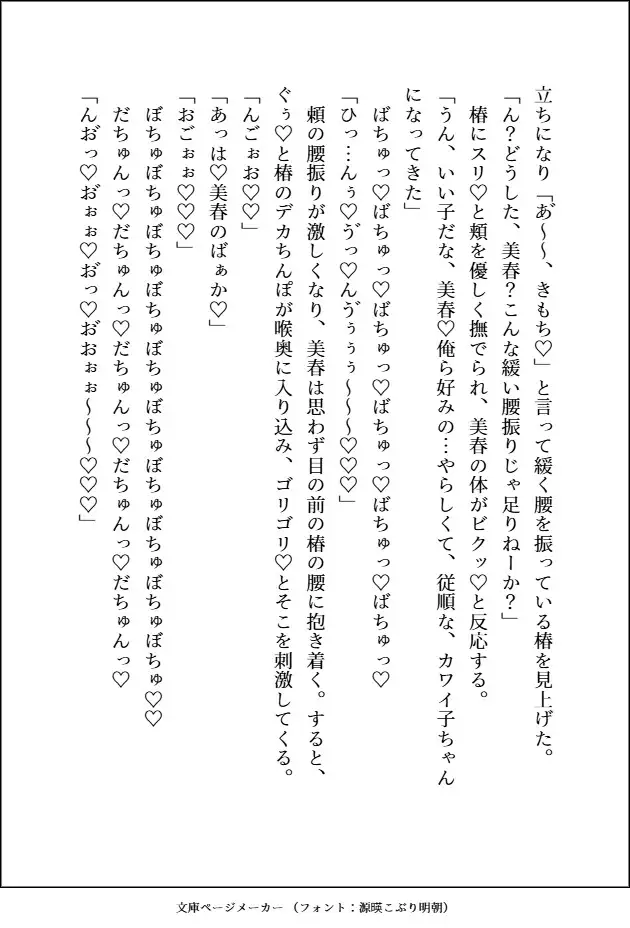 立ちになり「あ゙～～、きもち♡」と言って緩く腰を振っている椿を見上げた。
「ん？どうした、美春？こんな緩い腰振りじゃ足りねーか？」
　椿にスリ♡と頬を優しく撫でられ、美春の体がビクッ♡と反応する。
「うん、いい子だな、美春♡俺ら好みの…やらしくて、従順な、カワイ子ちゃん
になってきた」
　ばちゅっ♡ばちゅっ♡ばちゅっ♡ばちゅっ♡ばちゅっ♡ばちゅっ♡
「ひっ…んぅ♡ゔっ♡んゔぅぅぅ～～～♡♡♡」
　頼の腰振りが激しくなり、美春は思わず目の前の椿の腰に抱き着く。すると、
ぐぅ♡と椿のデカちんぽが喉奥に入り込み、ゴリゴリ♡とそこを刺激してくる。
「んごぉお♡♡」
「あっは♡美春のばぁか♡」
「おごぉぉ♡♡♡」
　ぼちゅぼちゅぼちゅぼちゅぼちゅぼちゅぼちゅぼちゅぼちゅぼちゅ♡♡
　だちゅんっ♡だちゅんっ♡だちゅんっ♡だちゅんっ♡だちゅんっ♡
「んお゙っ♡お゙ぉぉ♡お゙っ♡お゙おぉぉ～～～♡♡♡」
文庫ページメーカー（フォント：源暎こぶり明朝）